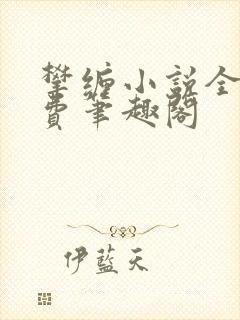 攀缠小说全
费笔趣阁
伊蓝天